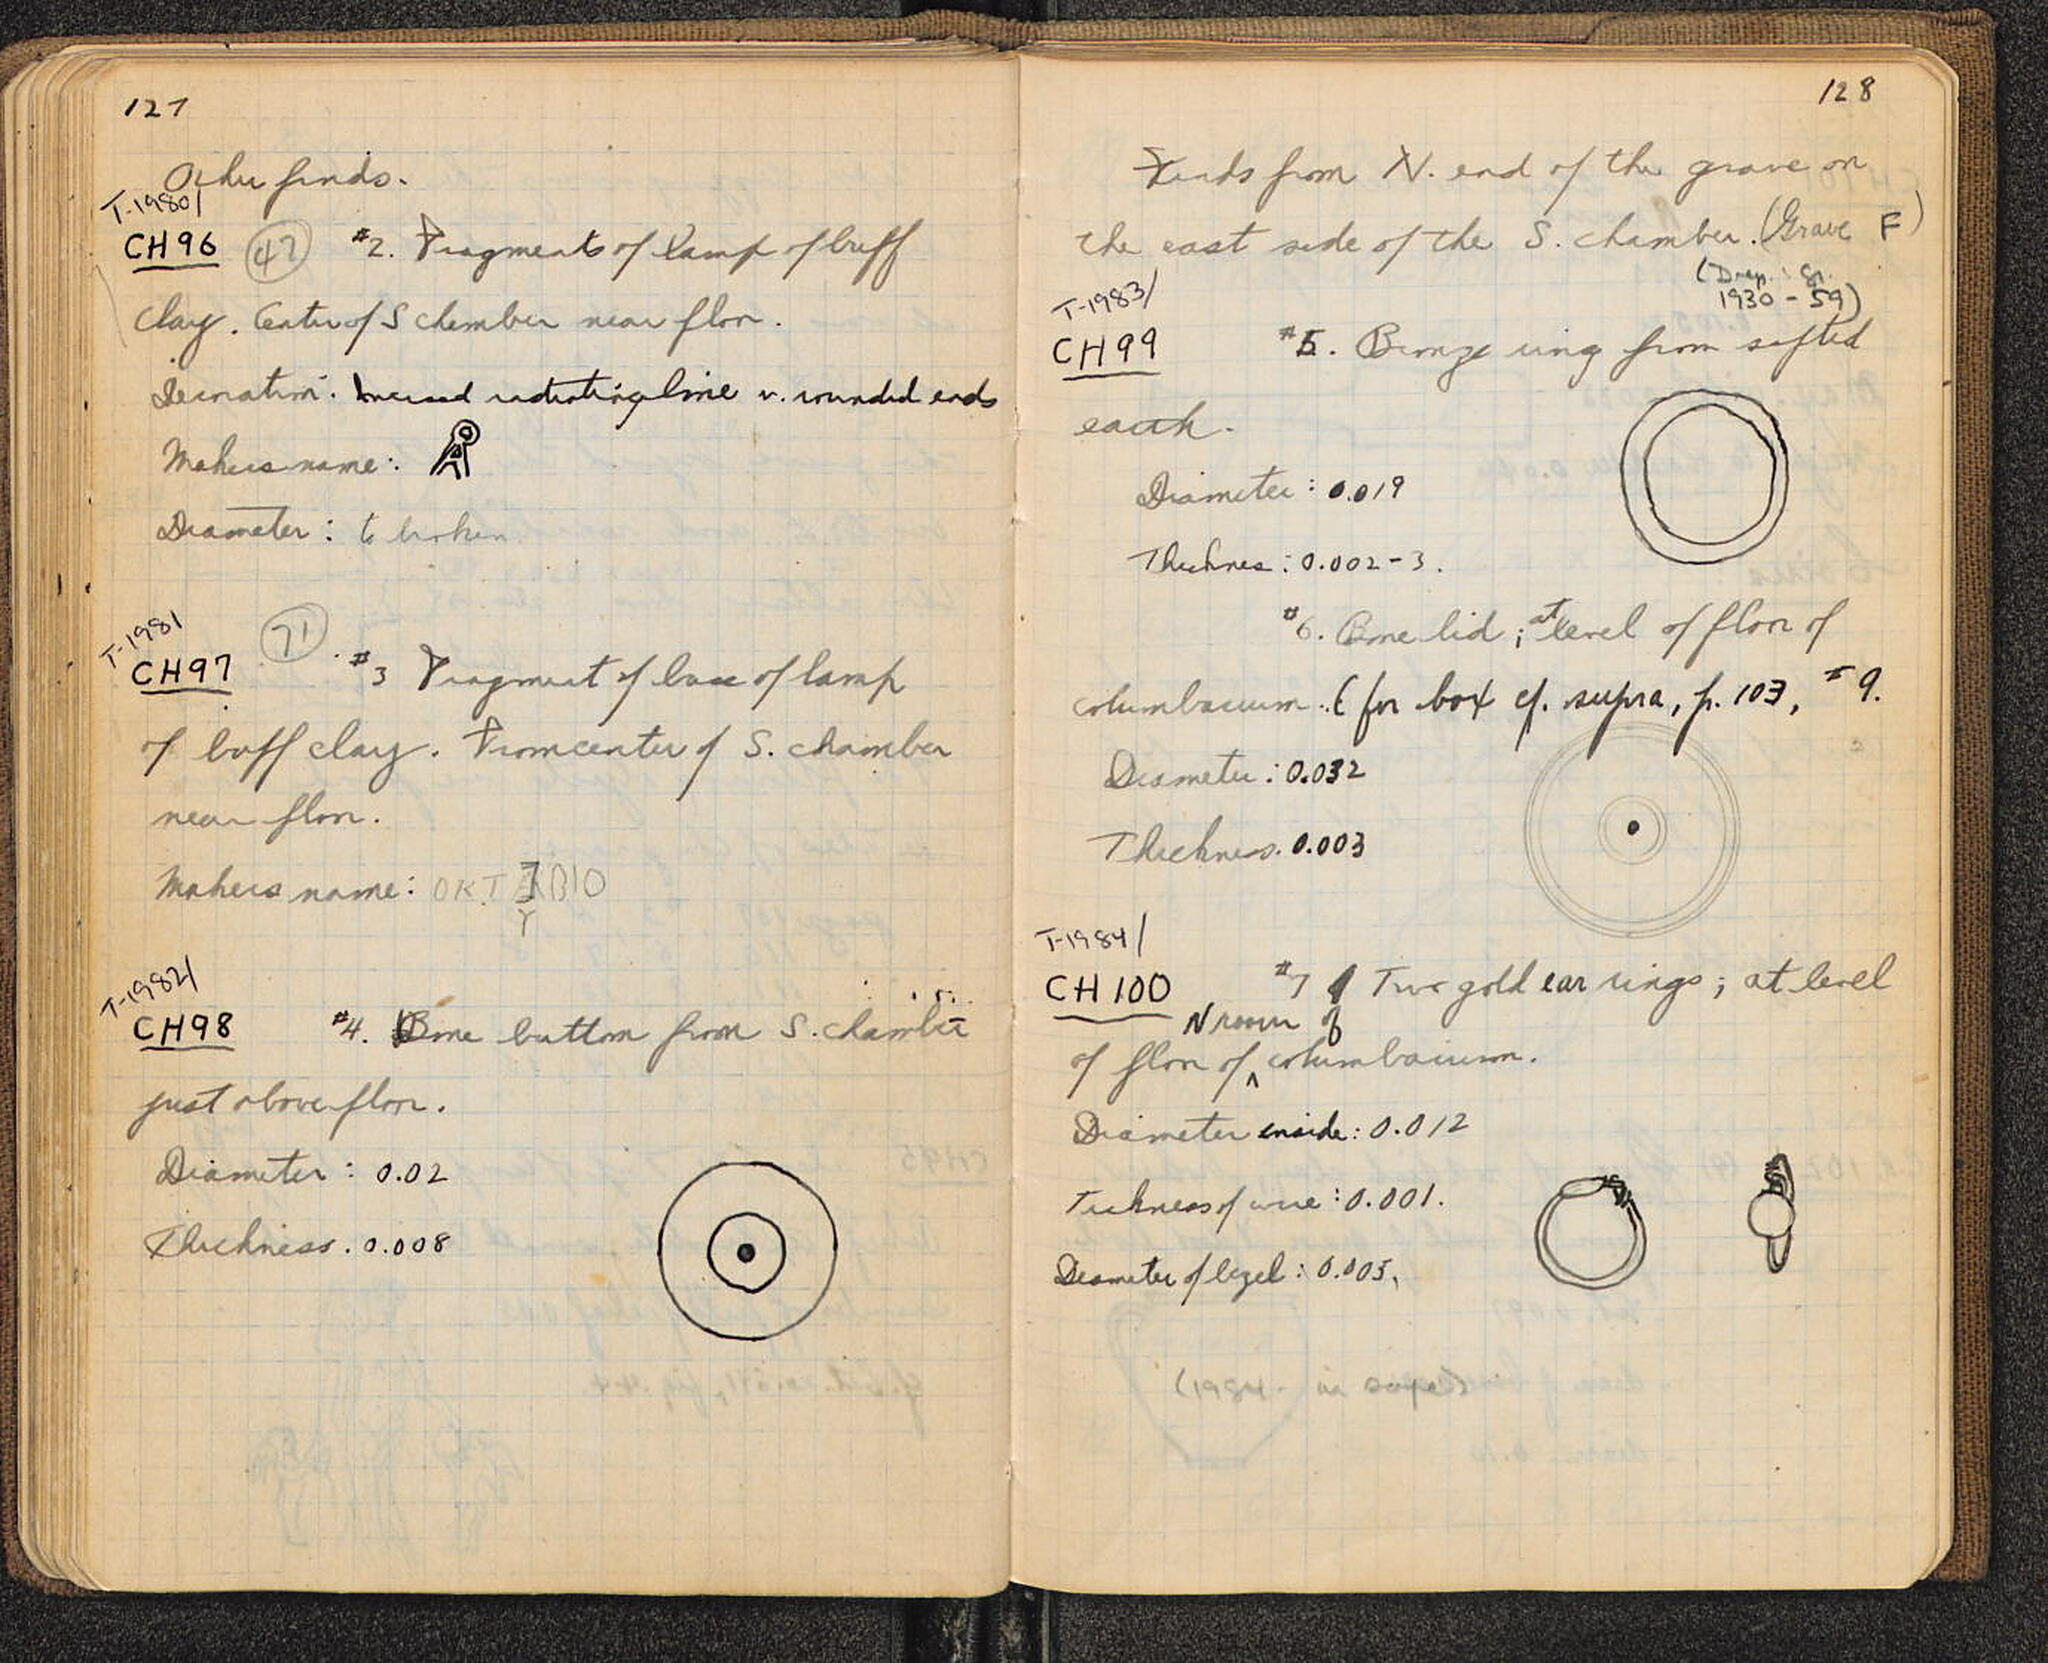 127
Other finds.
T-1980/
CH96 (47) #2. Fragments of lamp of buff
clay. Center of S chamber near floor.
Decoration: Incised radiating line w. rounded ends
Makers name:
Diameter: to broken
T-1981
CH97 (71) #3 Fragment of base of lamp
of buff clay. From center of S. chamber
near floor.
Makers name:
T-1982/
CH98 #4. Bone button from S. chamber
just above floor.
Diameter: 0.02
Thickness. 0.008
128
Finds from N. end of the grave on
the east side of the S. chamber. (Grave F)
1930-59)
T-1983/
CH99 #5. Bronze ring from sifted
earth.
Diameter: 0.019
Thicknes: 0.002-3.
#6. Bone lid; at level of floor of
columbarium. (for box cf. supra, p. 103, #9.
Diameter: 0.032
Thickness. 0.003
T-1984/
CH100 #7 Two gold ear rings; at level
N room of
of floor of ^ columbarium.
Diameter inside: 0.012
Tickness of wire: 0.001.
Diameter of bezel: 0.005.
(1984- in safe)